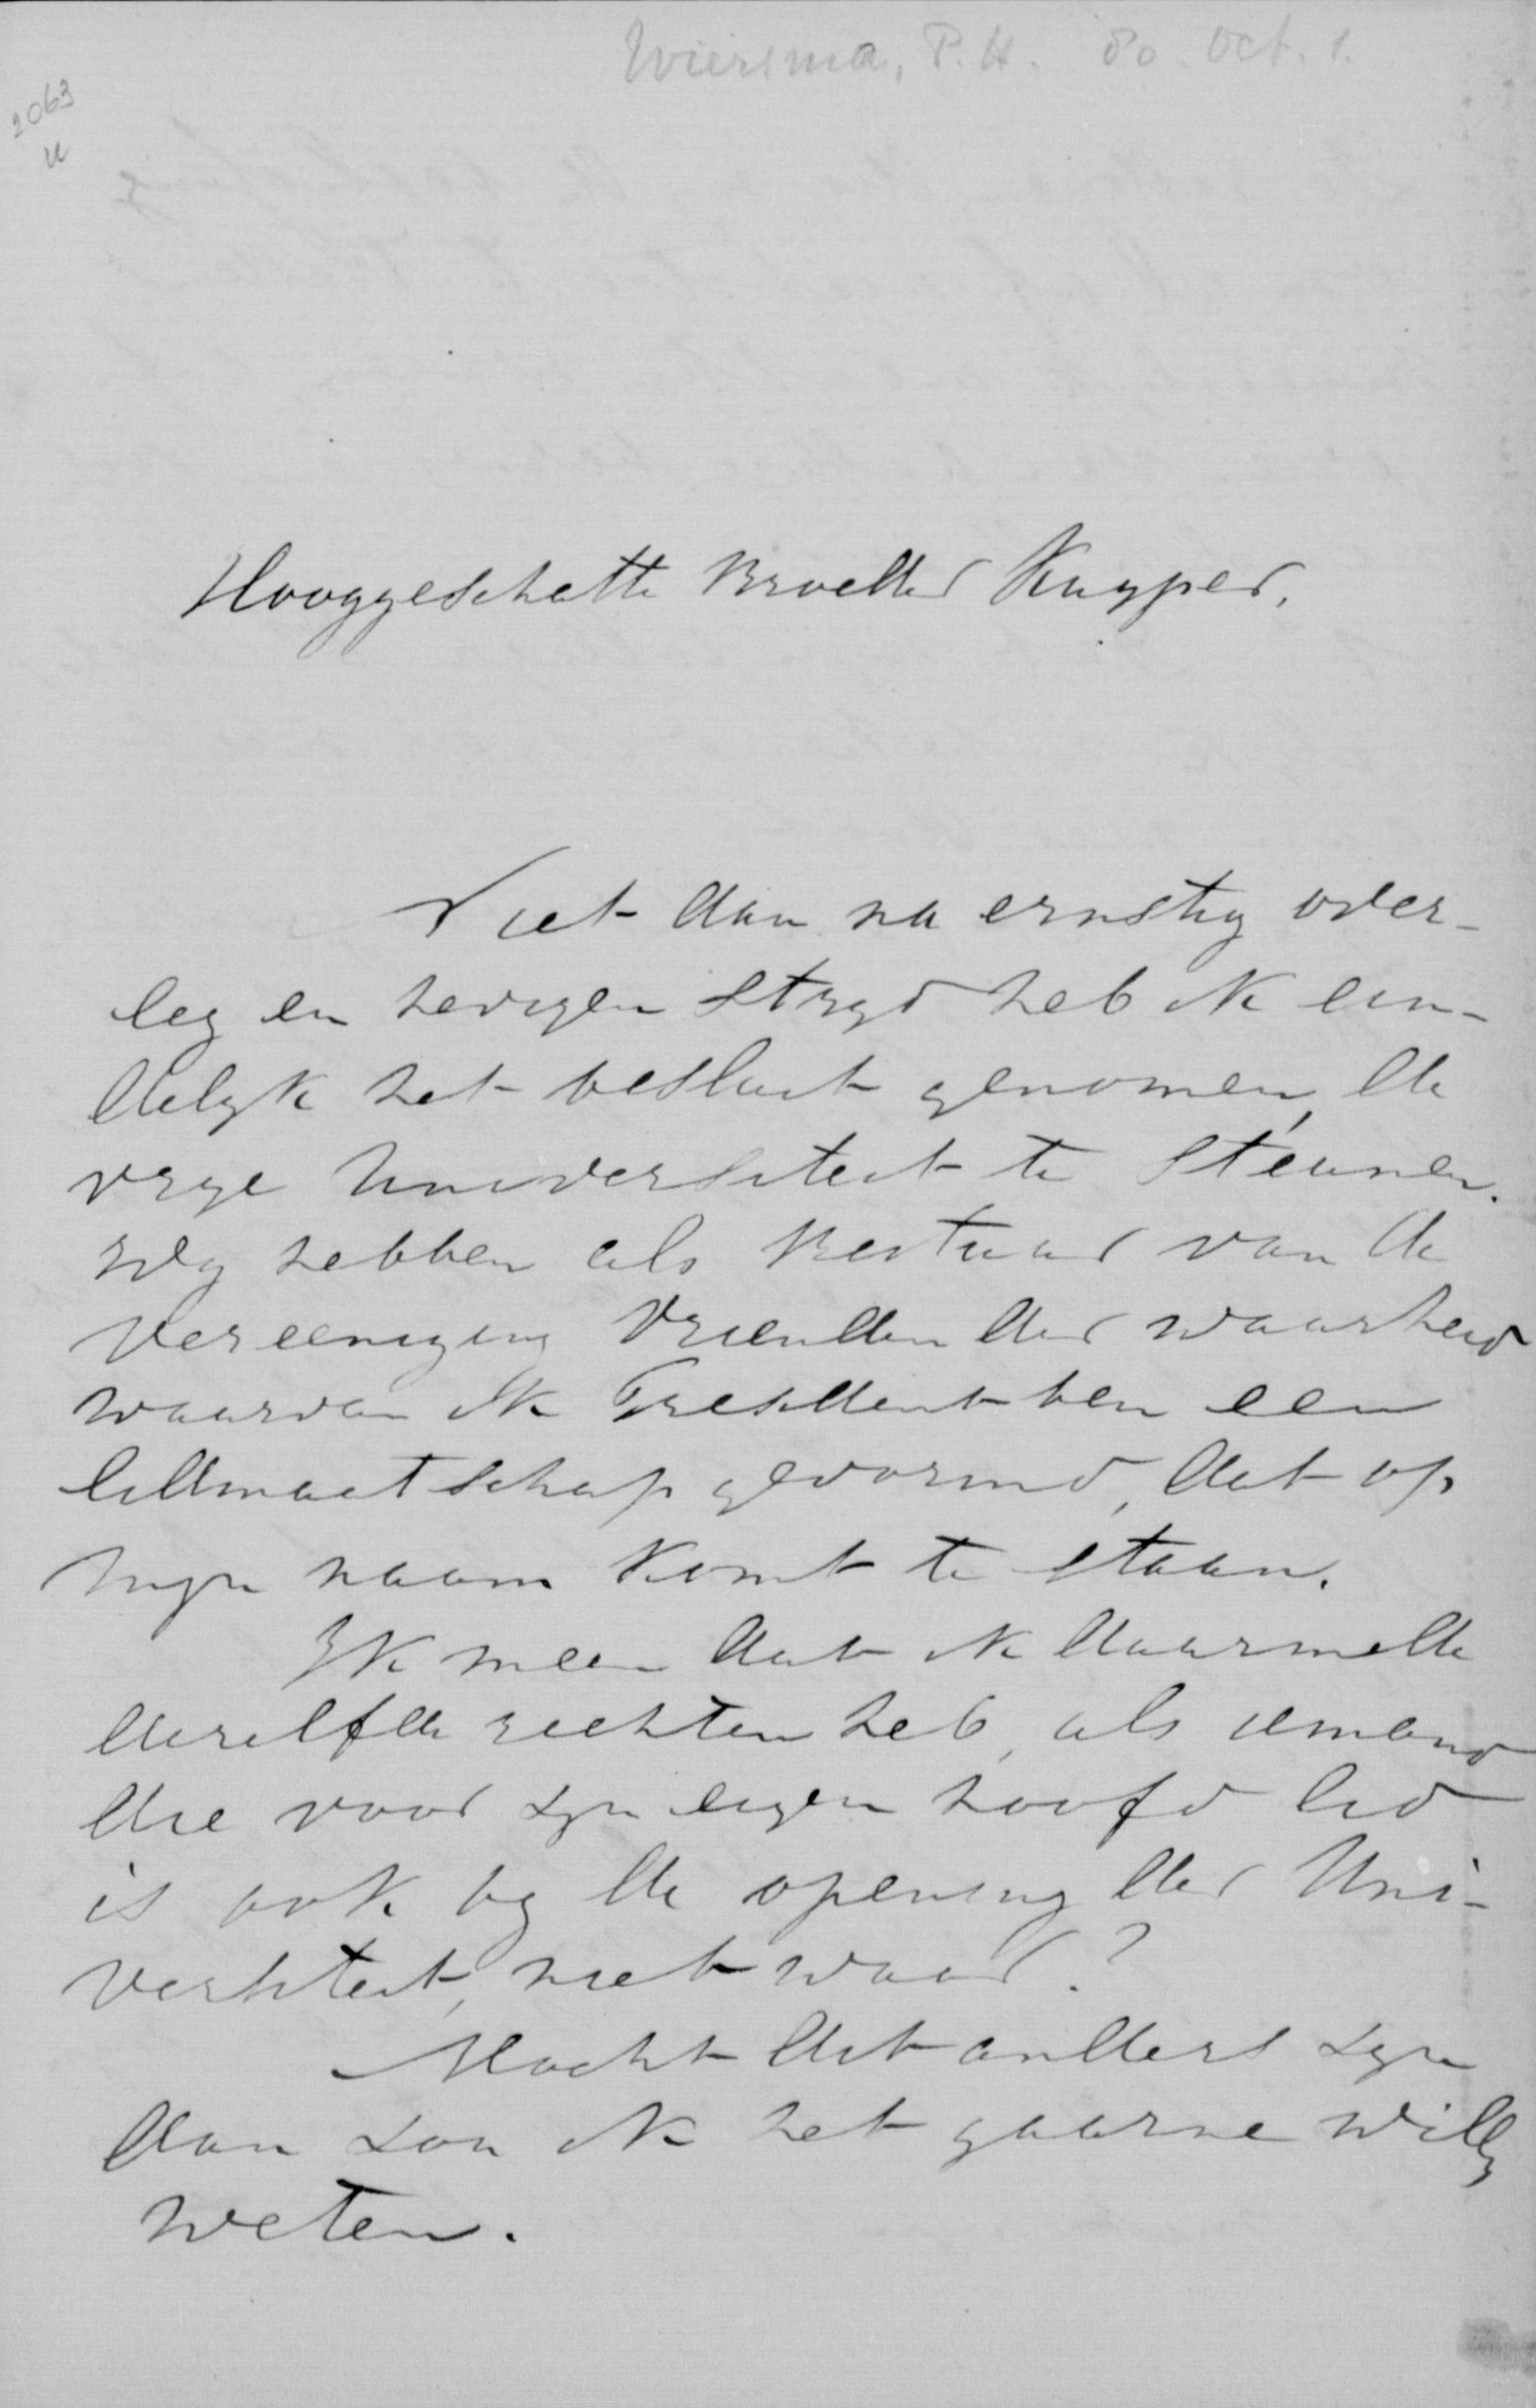 Wiersma, P.H. 80. Oct. 1.
2063
Hooggeschatte Broeder Kuyper,
Niet dan na ernstig over-
leg en hevigen strijd heb ik ein-
delijk het besluit genomen, de
vrije Universiteit te steunen.
Wij hebben als Bestuur van de
Vereeniging Vrienden der waarheid
waarvan ik President ben een
lidmaatschap gevormd, dat op
mijn naam komt te staan.
Ik meen dat ik daarmede
dezelfde rechten heb, als iemand
die voor zijn eigen hoofd lid
is ook bij de opening der Uni-
versiteit, niet waar?
Mocht dit anders zijn
dan zou ik het gaarne willen
weten.